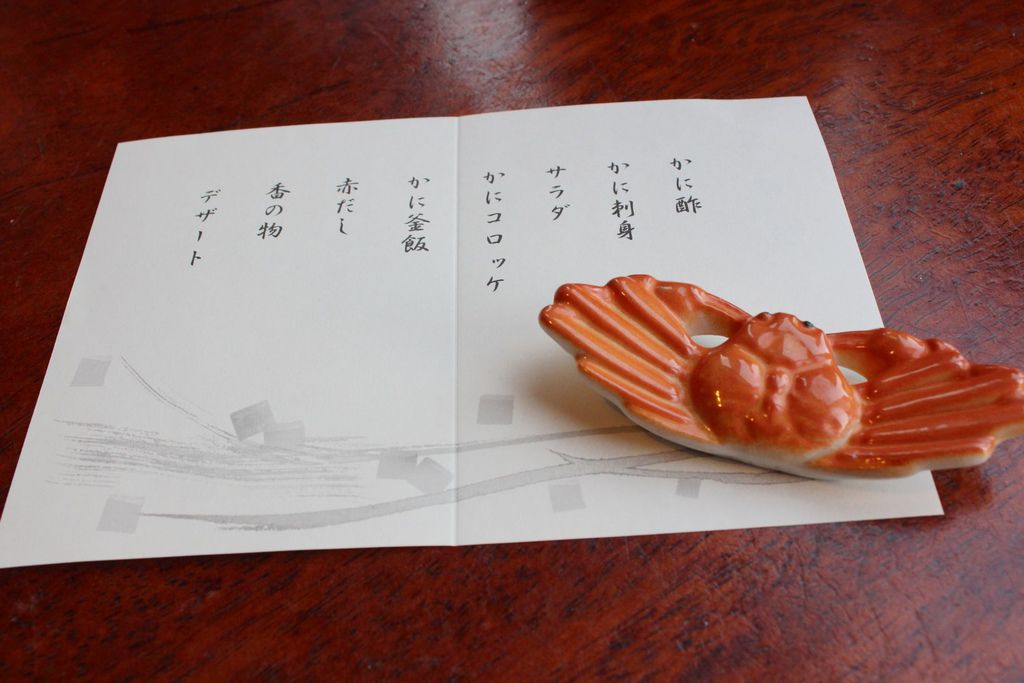 かに酢
かに刺身
サラダ
かにコロッケ
かに釜飯
赤だし
香の物
デザート